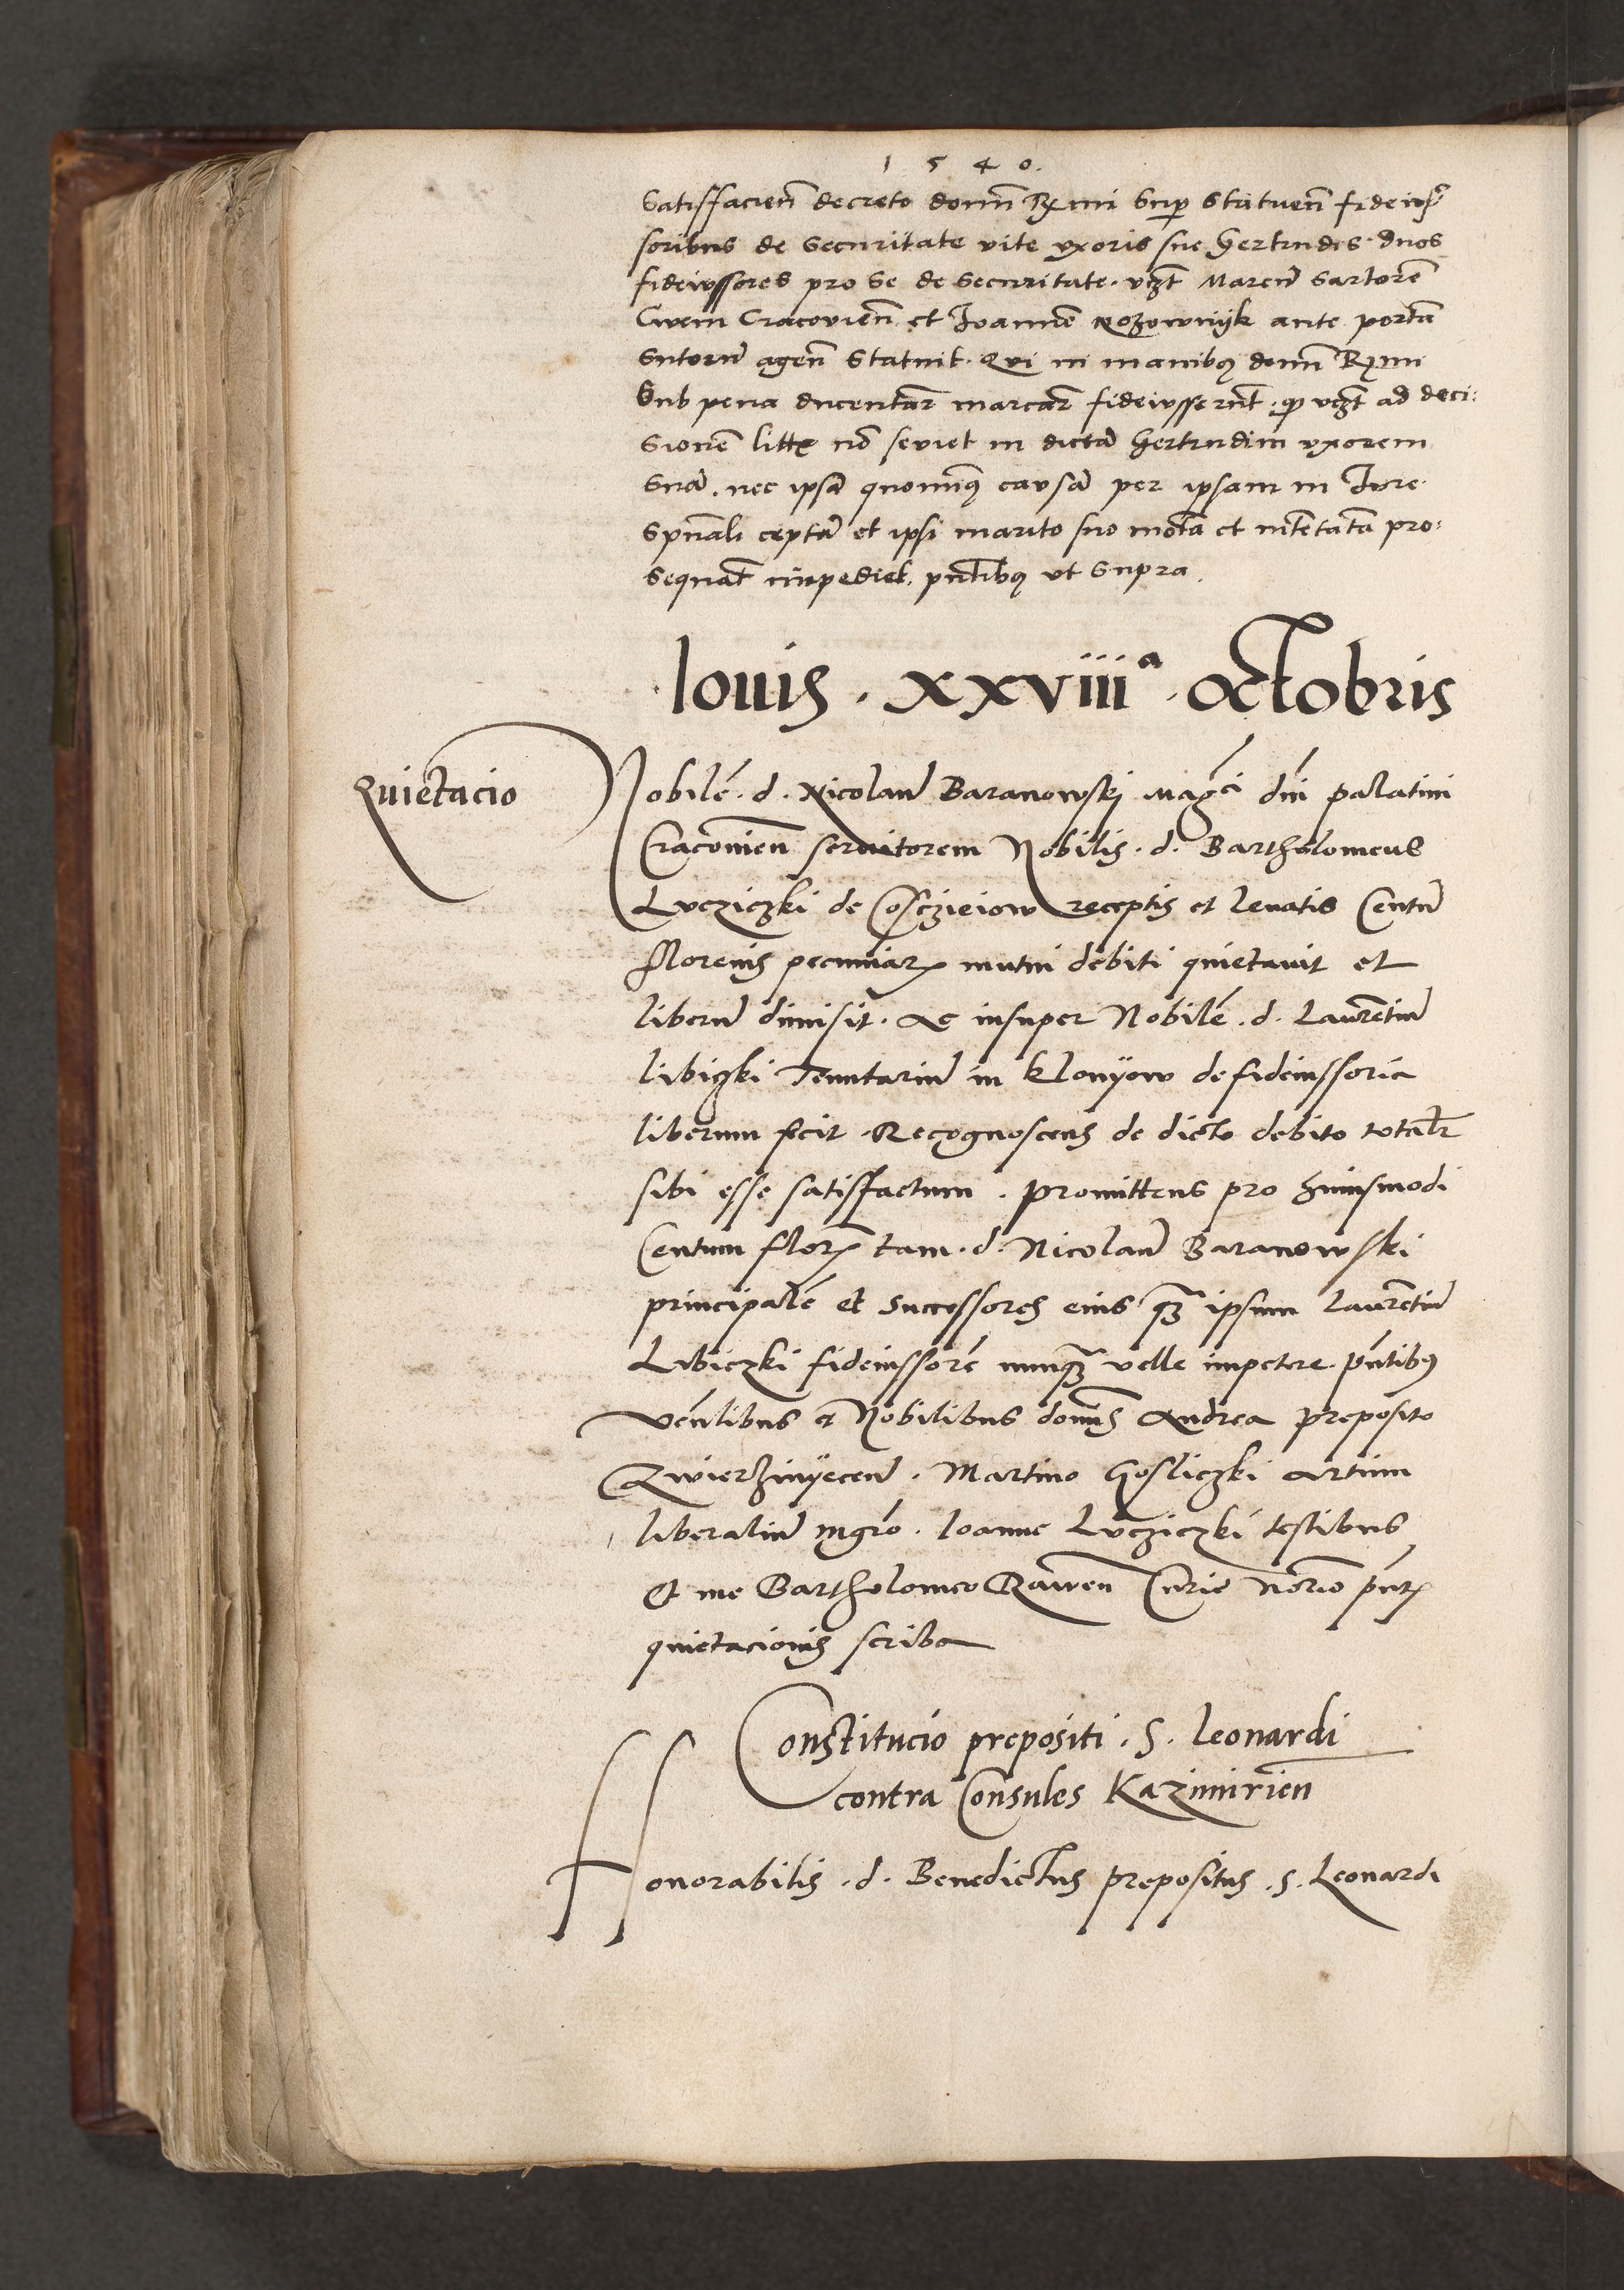 1 5 4 0.
Satisfacień decreto domń Rx̃mi Sup̱ Statueń fideiuſ⸗
soribus de Securitate vite vxoris sue Hertrudis duos
fideiussores pro Se de Securitate. vꝫt Marcū Sartorē
Civem Cracovień et Joannē Nozownijk ante portā
Sutorū ageń Statuit. Qui in manibꝯ domń Rx̃mi
Sub pena ducentar̄ marcar̄ fideiusserūt. ꝙ vꝫt ad deci:
Sionē litis nō seviet in dictā Hertrudim vxorem
Suā. nec ipsā quominꝯ causā per ipsam in Jure
Spūali ceptā et ipsi marito suo motā et intētatā pro:
Sequat̄ impediet. pn̄tibꝯ vt Supra.
Iouis . xxviiiᵃ . Octobris
Quietacio
Nobilē. d. Nicolaū Baranowskj Magci dn̄i palatini
Cracouień seruitorem Nobilis. d. Bartholomeus
Lvcziczki de Cosczieiow receptis et leuatis Centū
florenis pecuniarꝝ mutui debiti quietauit et
liberū dimisit. Ac insuper Nobilē. d. Laurētiū
libiczki Tenutariū in Klonÿow de fideiussoria
liberum fecit. Recognoscens de dicto debito totalr̄
sibi esse satisfactum. promittens pro huiusmodi
Centum florꝝ tam. d. Nicolaū Baranowski
principalē et Successores eius qꝫ ipsum Laurētiū
Libiczki fideiussorē nunqꝫ velle impetere. pn̄tibꝯ
vēnlibus et Nobilibus domīs Andrea preposito
Zwierzinÿeceń. Martino Gosliczki Artium
liberaliū mgrō. Ioanne Lvcziczki testibus
Et me Bartholomeo Raweń Curie Notrio pn̄tꝝ
quietacionis scriba
Constitucio prepositi. S. Leonardi
contra Consules Kazimirień
Honorabilis. d. Benedictus prepositus. S. Leonardi